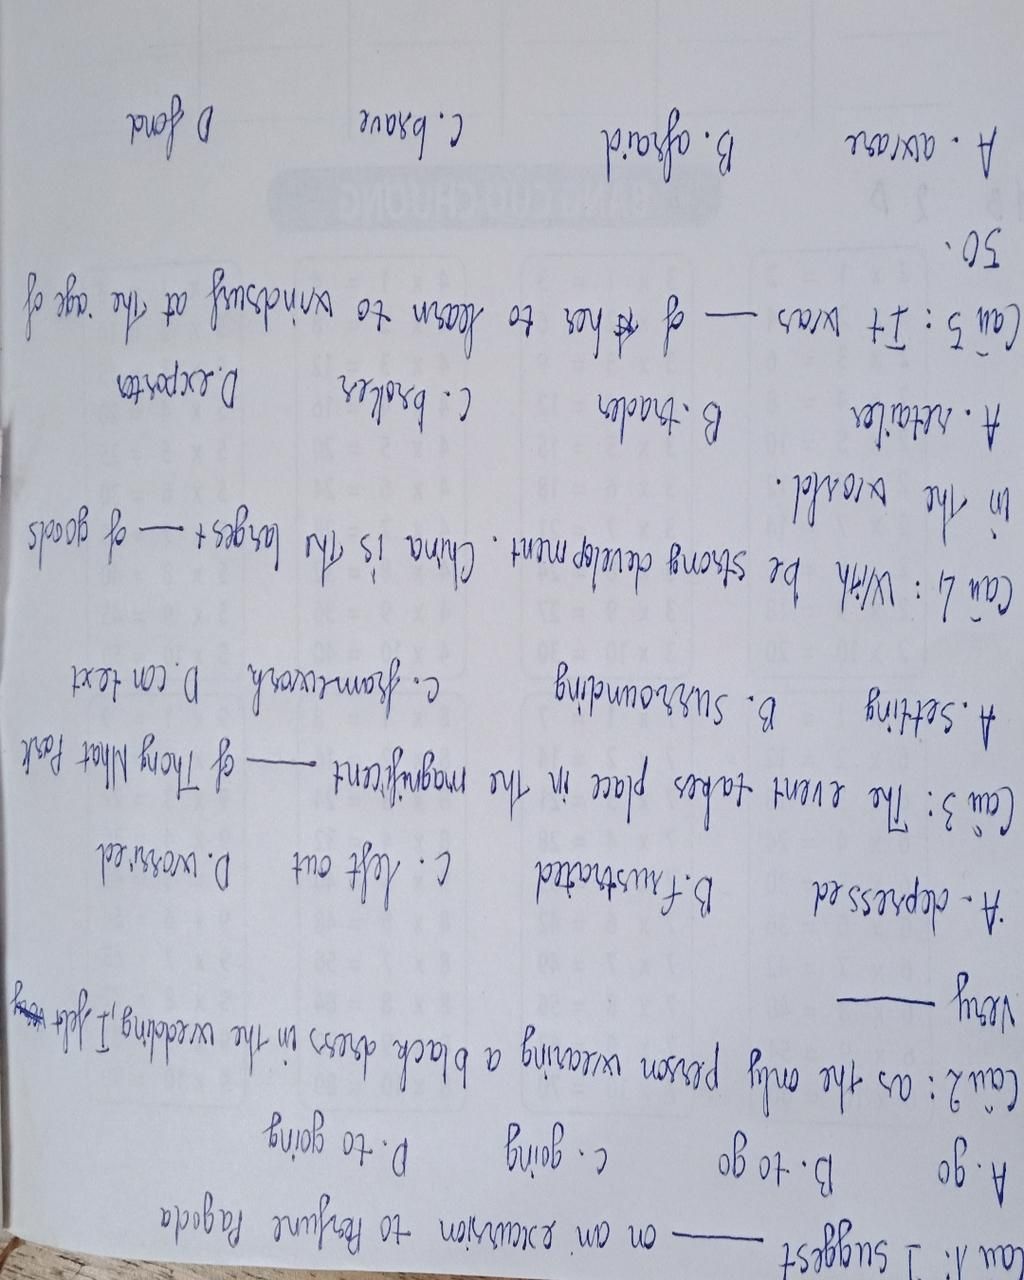 Câu 1: I suggest —— on an excursion to Perfume Pagoda
A. go B. to go C. going D. to going
Câu 2: as the only person wearing a black dress in the wedding, I felt
very ——
A. depressed B. frustrated C. left out D. worried
Câu 3: The event takes place in the magnificent —— of Thong Nhat Park
A. setting B. surrounding C. framework D. context
Câu 4: With be strong development. China is the largest —— of goods
in the world.
A. retailer B. trader C. broker D. exporter
Câu 5: It was —— of her to learn to windsurf at the age of
50.
A. aware B. afraid C. brave D fond